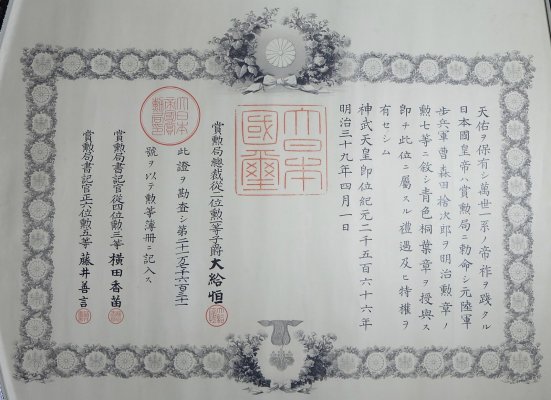 天佑ヲ保有シ萬世一系ノ帝祚ヲ踐タル
日本國皇帝ハ賞勲局ニ勅命シ元陸軍
歩兵軍曹森田捨次郎ヲ明治勲章ノ
勲七等ニ敘シ青色桐葉章ヲ授與ス
即チ此位ニ屬スル禮遇及ヒ特權ヲ
有セシム
神武天皇即位紀元二千五百六十六年
明治三十九年四月一日
大日本國璽
賞勲局總裁從二位勲一等子爵大給恒
此證ヲ勘査シ第二十一万千六百三十一
號ヲ以テ勲等簿冊ニ記入ス
賞勲局書記官從四位勲三等横田香苗
賞勲局書記官正六位勲五等藤井善言